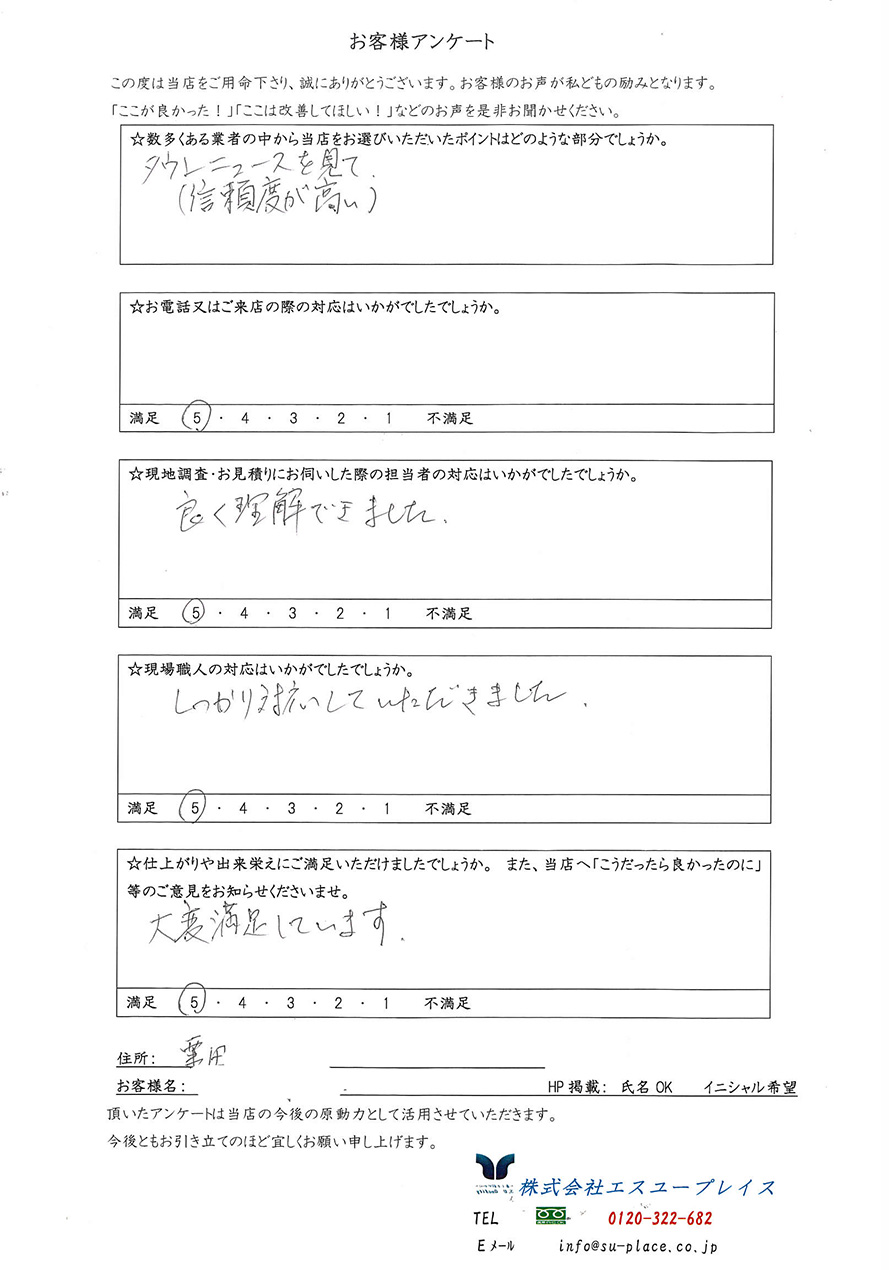 お客様アンケート
この度は当店をご用命下さり、誠にありがとうございます。お客様のお声が私どもの励みとなります。
「ここが良かった！」「ここは改善してほしい！」などのお声を是非お聞かせください。
☆数多くある業者の中から当店をお選びいただいたポイントはどのような部分でしょうか。
タウンニュースを見て.
(信頼度が高い)
☆お電話又はご来店の際の対応はいかがでしたでしょうか。
満足 5 ・ 4 ・ 3 ・ 2 ・ 1 不満足
☆現地調査・お見積りにお伺いした際の担当者の対応はいかがでしたでしょうか。
良く理解できました.
満足 5 ・ 4 ・ 3 ・ 2 ・ 1 不満足
☆現場職人の対応はいかがでしたでしょうか。
しっかり対応していただきました.
満足 5 ・ 4 ・ 3 ・ 2 ・ 1 不満足
☆仕上がりや出来栄えにご満足いただけましたでしょうか。 また、当店へ「こうだったら良かったのに」
等のご意見をお知らせくださいませ。
大変満足しています.
満足 5 ・ 4 ・ 3 ・ 2 ・ 1 不満足
住所：
お客様名： HP 掲載： 氏名 OK イニシャル希望
頂いたアンケートは当店の今後の原動力として活用させていただきます。
今後ともお引き立てのほど宜しくお願い申し上げます。
株式会社エスユープレイス
TEL 0120-322-682
Eメール info@su-place.co.jp